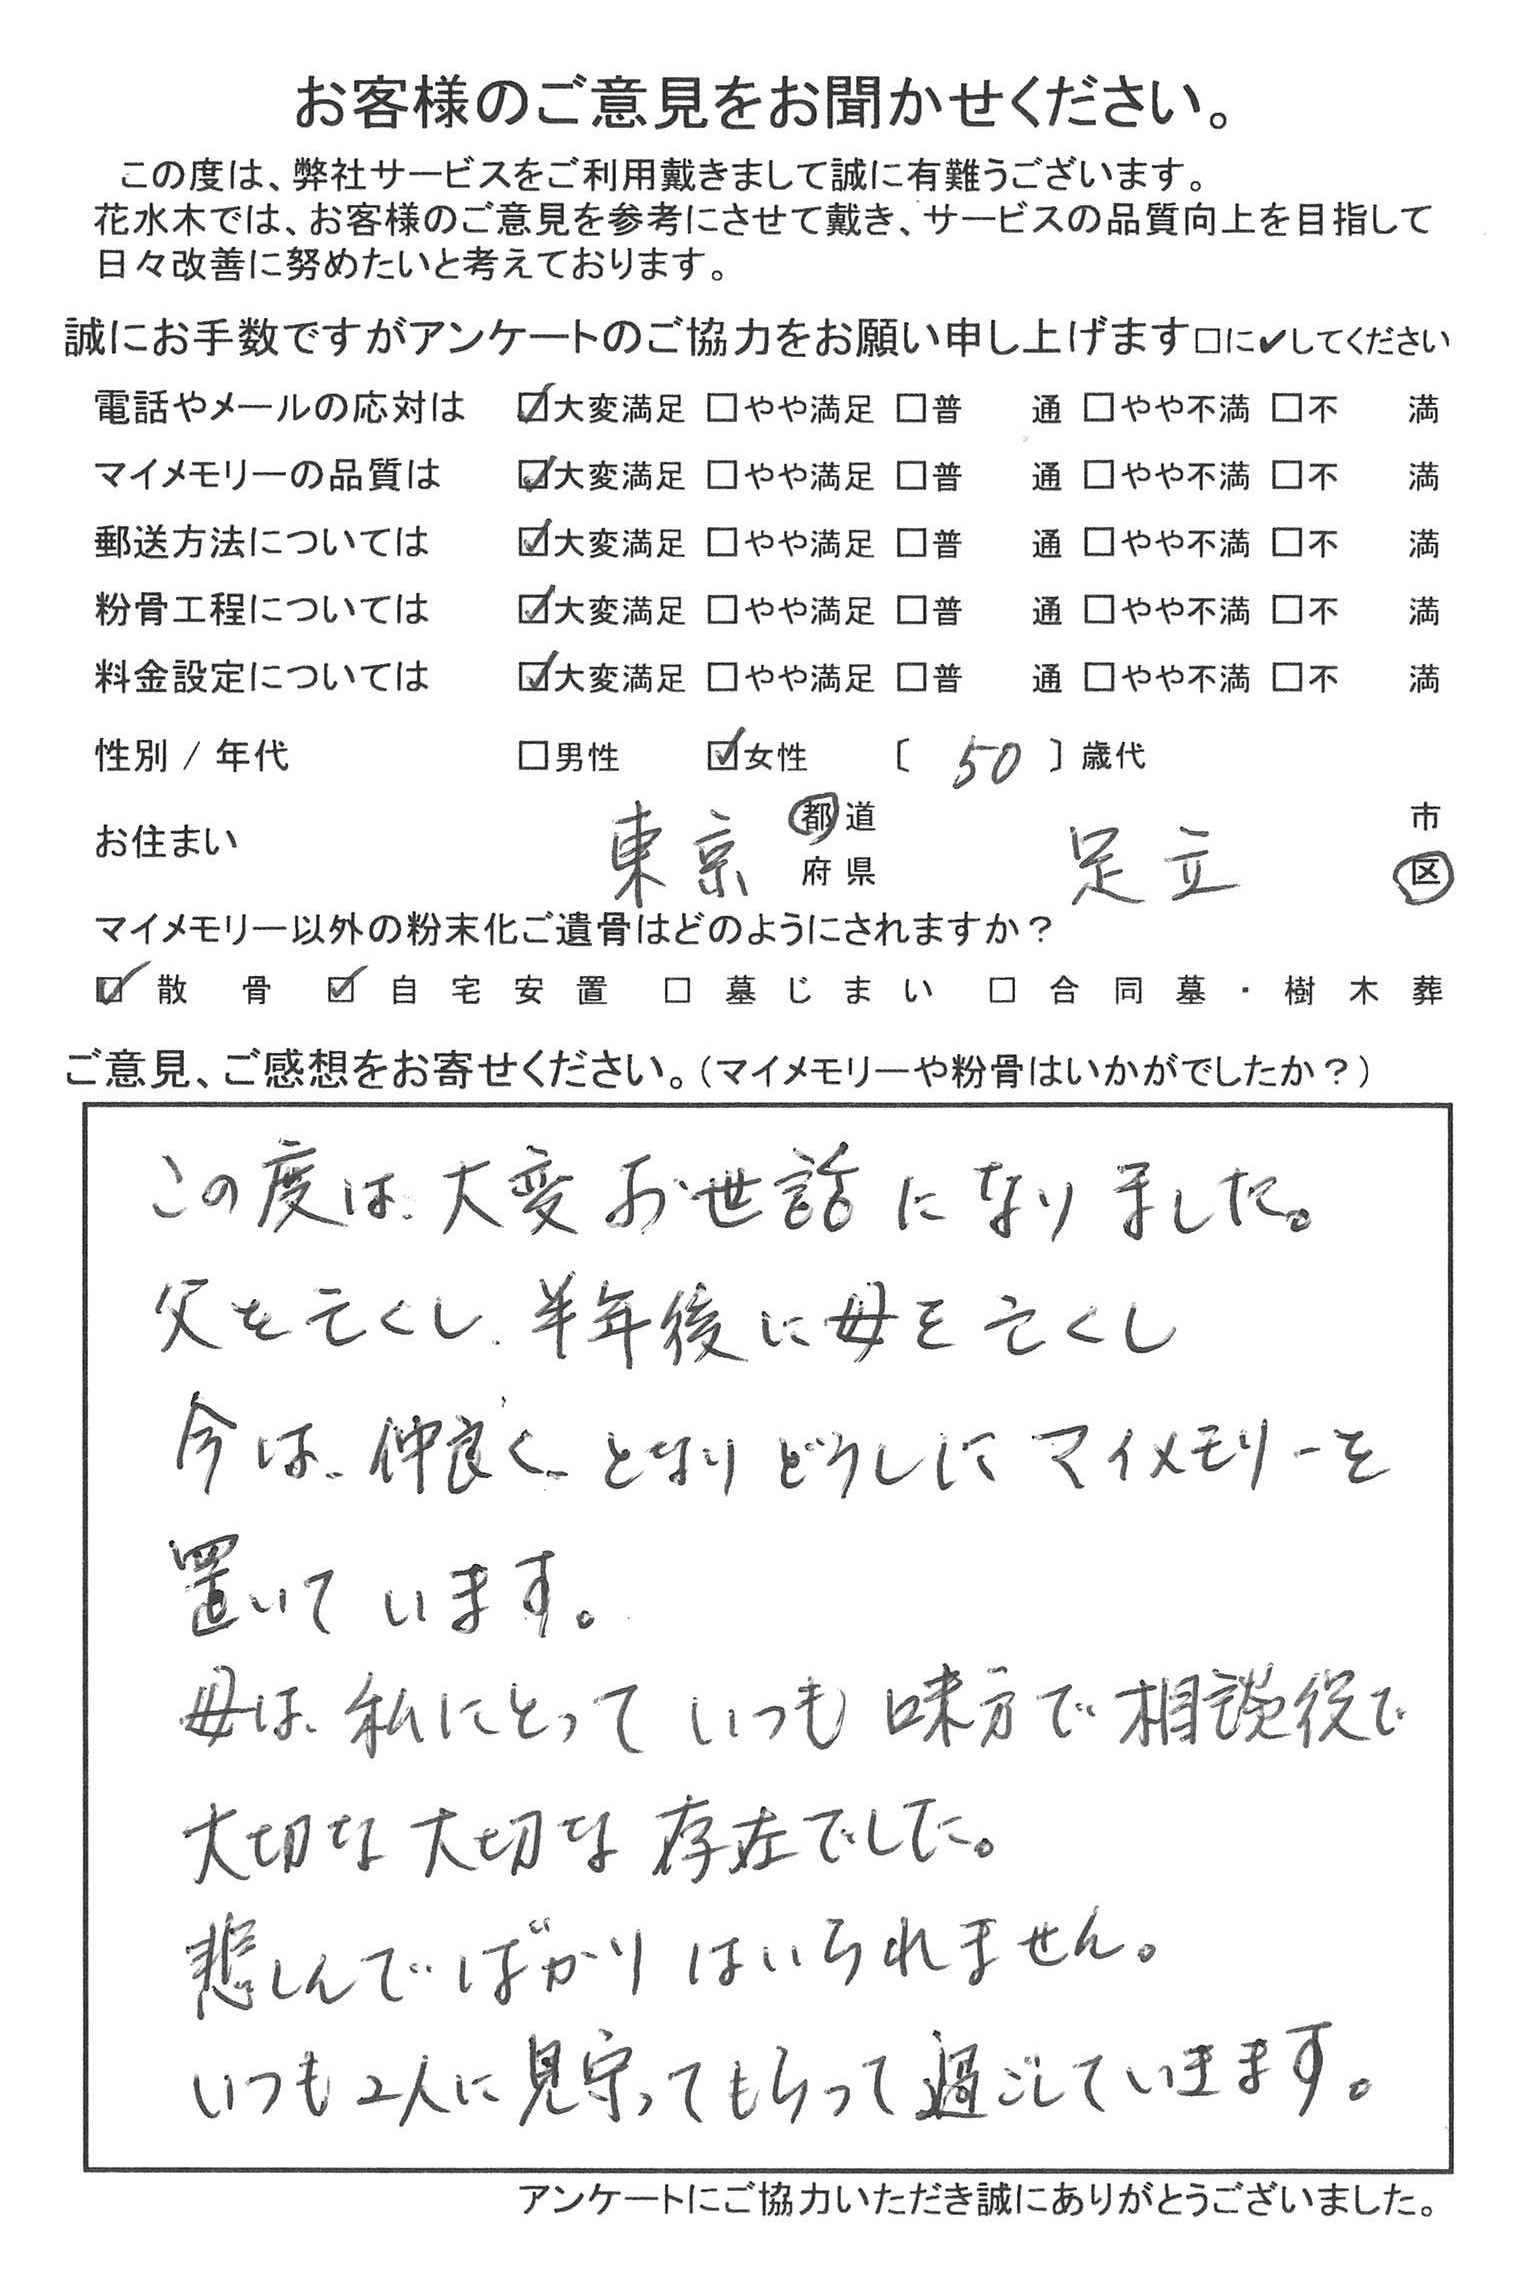 お客様のご意見をお聞かせください。
この度は、弊社サービスをご利用戴きまして誠に有難うございます。
花水木では、お客様のご意見を参考にさせて戴き、サービスの品質向上を目指して
日々改善に努めたいと考えております。
誠にお手数ですがアンケートのご協力をお願い申し上げます□に✔してください
電話やメールの応対は ☑大変満足 □やや満足 □普 通 □やや不満 □不 満
マイメモリーの品質は ☑大変満足 □やや満足 □普 通 □やや不満 □不 満
郵送方法については ☑大変満足 □やや満足 □普 通 □やや不満 □不 満
粉骨工程については ☑大変満足 □やや満足 □普 通 □やや不満 □不 満
料金設定については ☑大変満足 □やや満足 □普 通 □やや不満 □不 満
性別 / 年代 □男性 ☑女性 〔 50 〕歳代
お住まい 東京 都道府県 足立 市区
マイメモリー以外の粉末化ご遺骨はどのようにされますか？
☑ 散骨 ☑ 自宅安置 □ 墓じまい □ 合同墓・樹木葬
ご意見、ご感想をお寄せください。（マイメモリーや粉骨はいかがでしたか？）
この度は、大変お世話になりました。
父を亡くし、半年後に母を亡くし
今は、仲良く、となりどうしに マイメモリーを
置いています。
母は、私にとって いつも 味方で 相談役で
大切な大切な 存在でした。
悲しんでばかり はいられません。
いつも2人に見守ってもらって過ごしていきます。
アンケートにご協力いただき誠にありがとうございました。